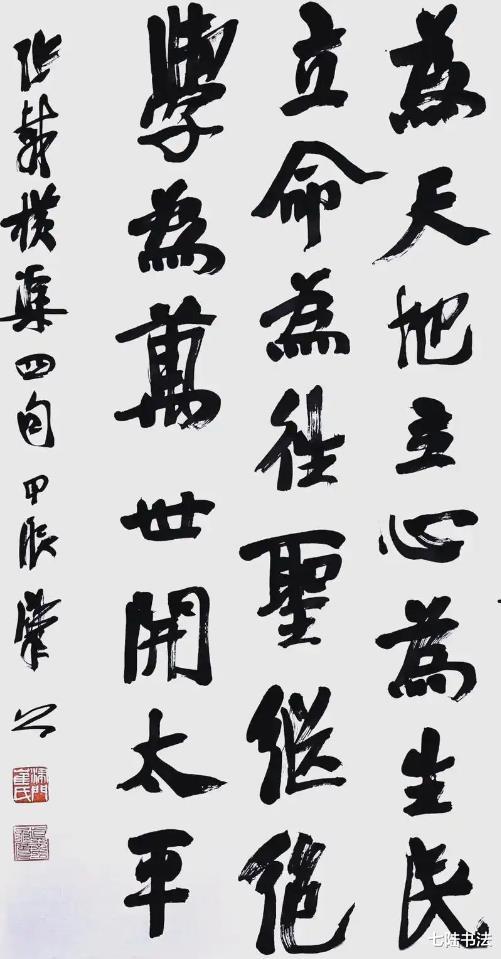 為天地立心為生民
立命為往聖继绝
學為萬世開太平
张載横渠四句甲辰
七陆书法